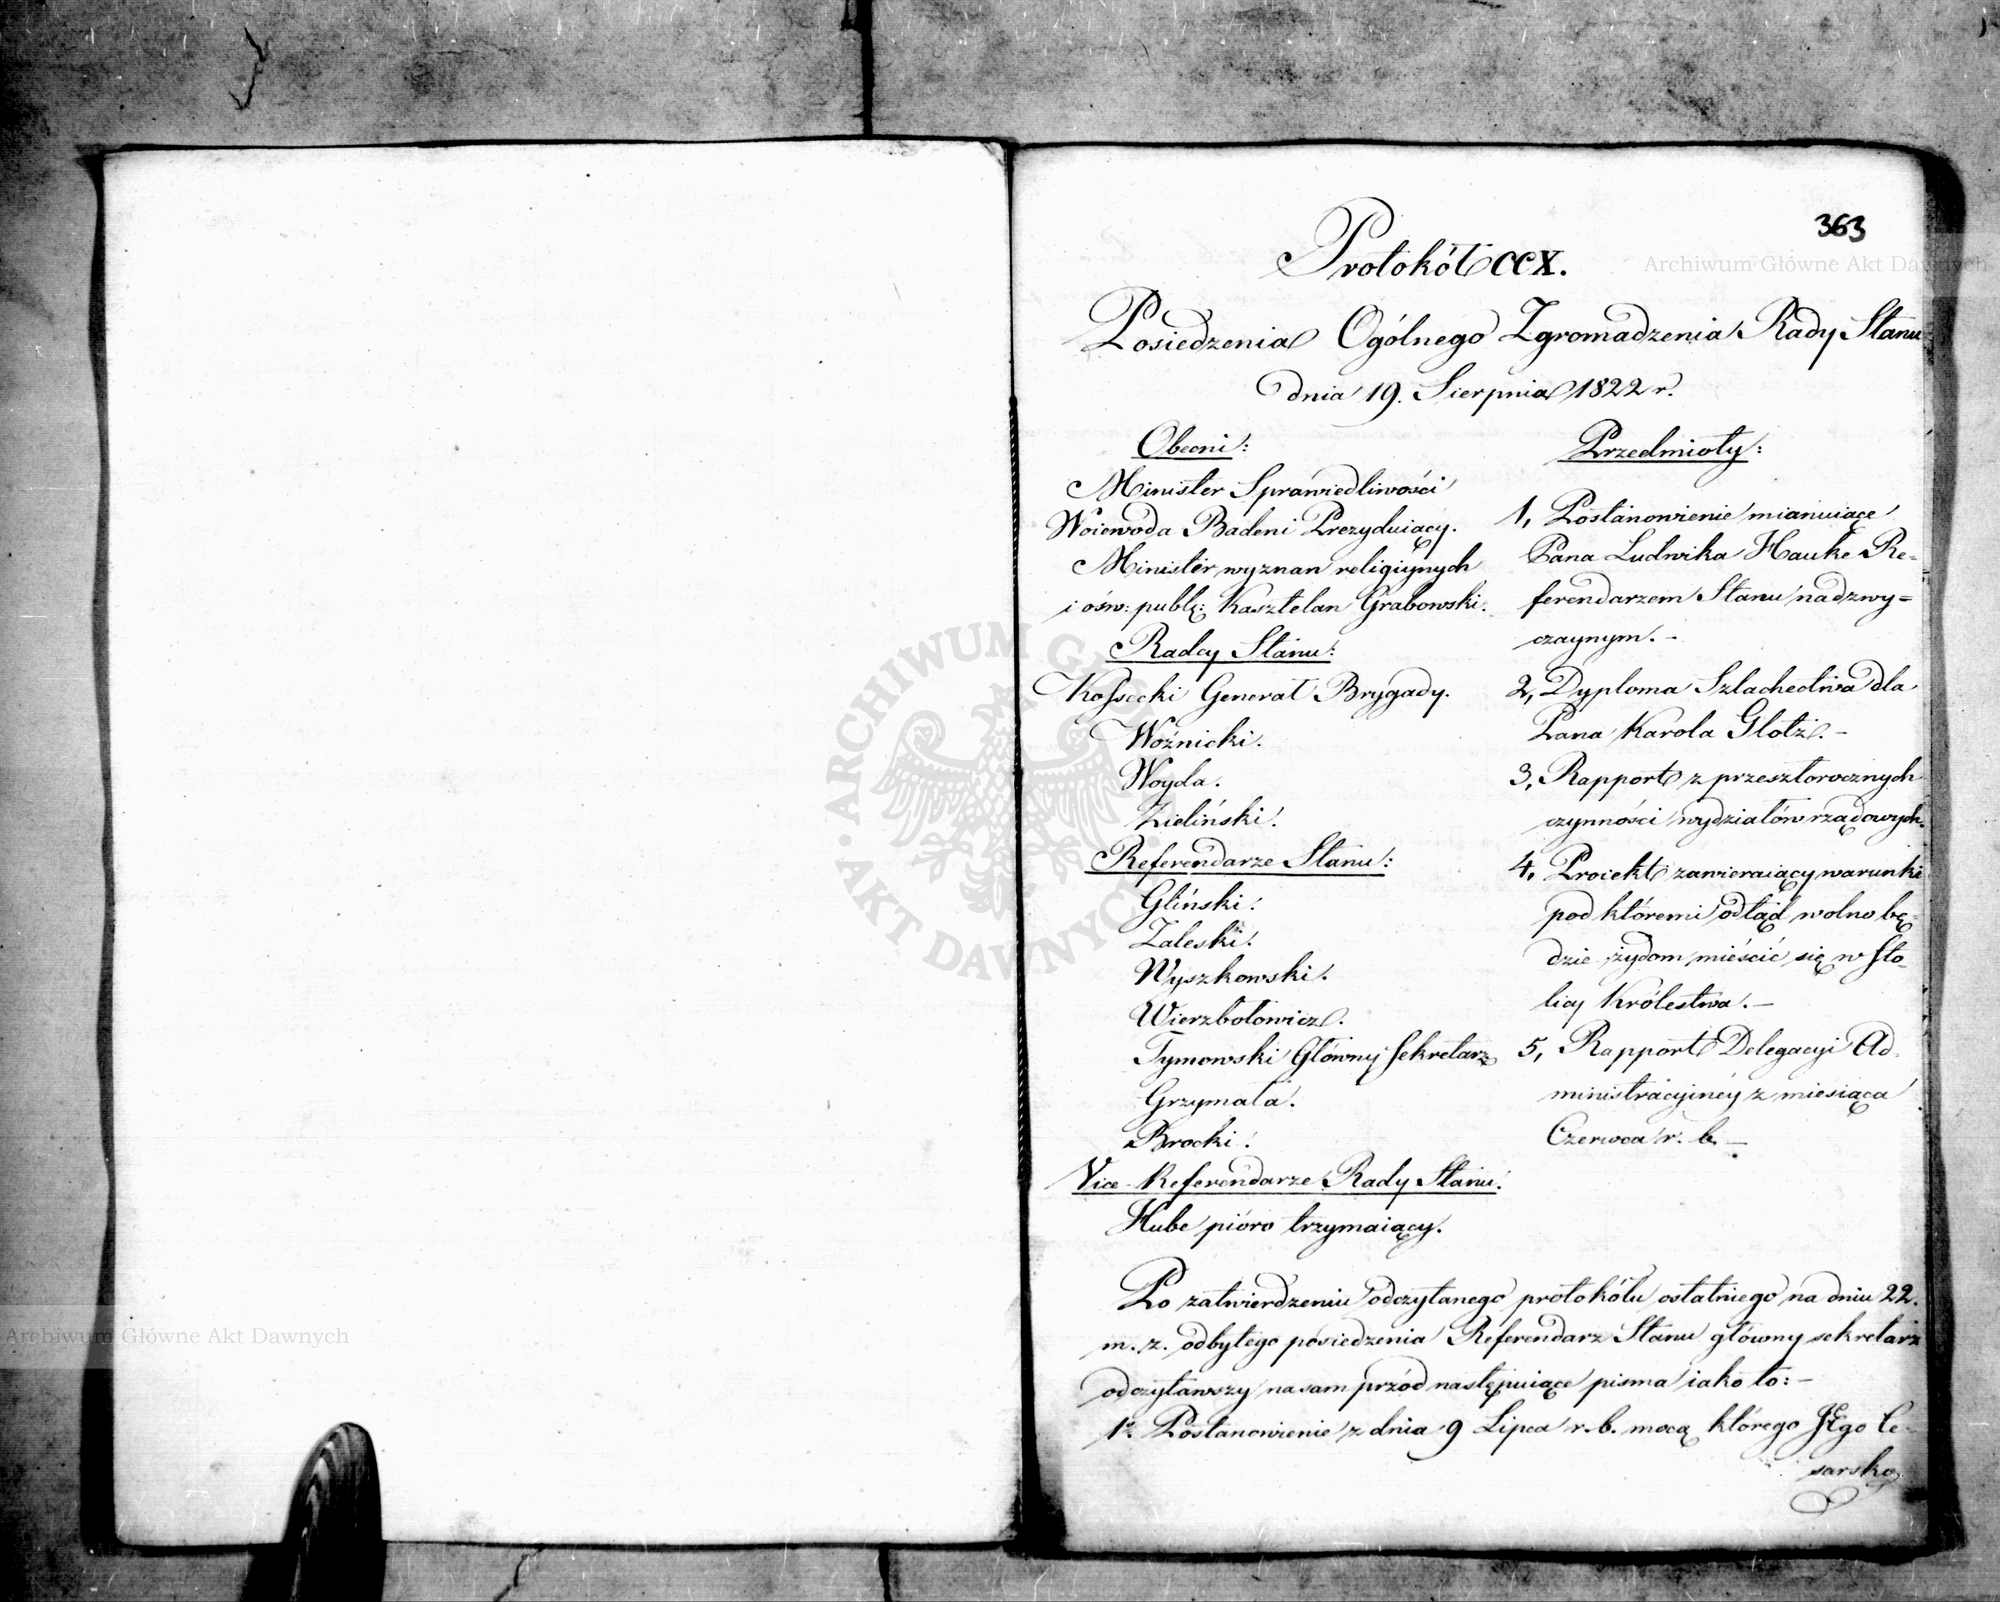 363
Protokół CCX.
Posiedzenia Ogólnego Zgromadzenia Rady Stanu
dnia 19. Sierpnia 1822 r.
Obecni:
Minister Sprawiedliwości
Woiewoda Badeni Prezyduiący.
Minister wyznań religiynych
i ośw: publ: Kasztelan Grabowski.
Radcy Stanu:
Kossecki Generał Brygady.
Woźnicki.
Woyda.
Zieliński.
Referendarze Stanu:
Gliński.
Zaleski.
Wyszkowski.
Wierzbołowicz.
Tymowski Główny Sekretarz
Grzymała.
Brocki.
Vice-Referendarze Rady Stanu:
Hube pióro trzymaiący.
Przedmioty:
1, Postanowienie mianuiące
Pana Ludwika Hauke Re=
ferendarzem Stanu nadzwy=
czaynym. –
2, Dyploma Szlachectwa dla
Pana Karola Glotz. –
3, Rapport z przeszłorocznych
czynności wydziałów rządowych.
4, Proiekt zawieraiący warunki
pod któremi odtąd wolno bę-
dzie żydom mieścić się w Sto-
licy Królestwa. –
5, Rapport Delegacyi Ad-
ministracyinéy z miesiąca
Czerwca r. b. –
Po zatwierdzeniu odczytanego protokółu ostatniego na dniu 22.
m. z. odbytego posiedzenia Referendarz Stanu główny sekretarz
odczytawszy nasamprzód następuiące pisma iako to: –
1º. Postanowienie z dnia 9 Lipca r. b. mocą którego JEgo Ce-
sarsko
Archiwum Główne Akt Dawnych
Archiwum Główne Akt Dawnych
ARCHIWUM GŁÓWNE AKT DAWNYCH